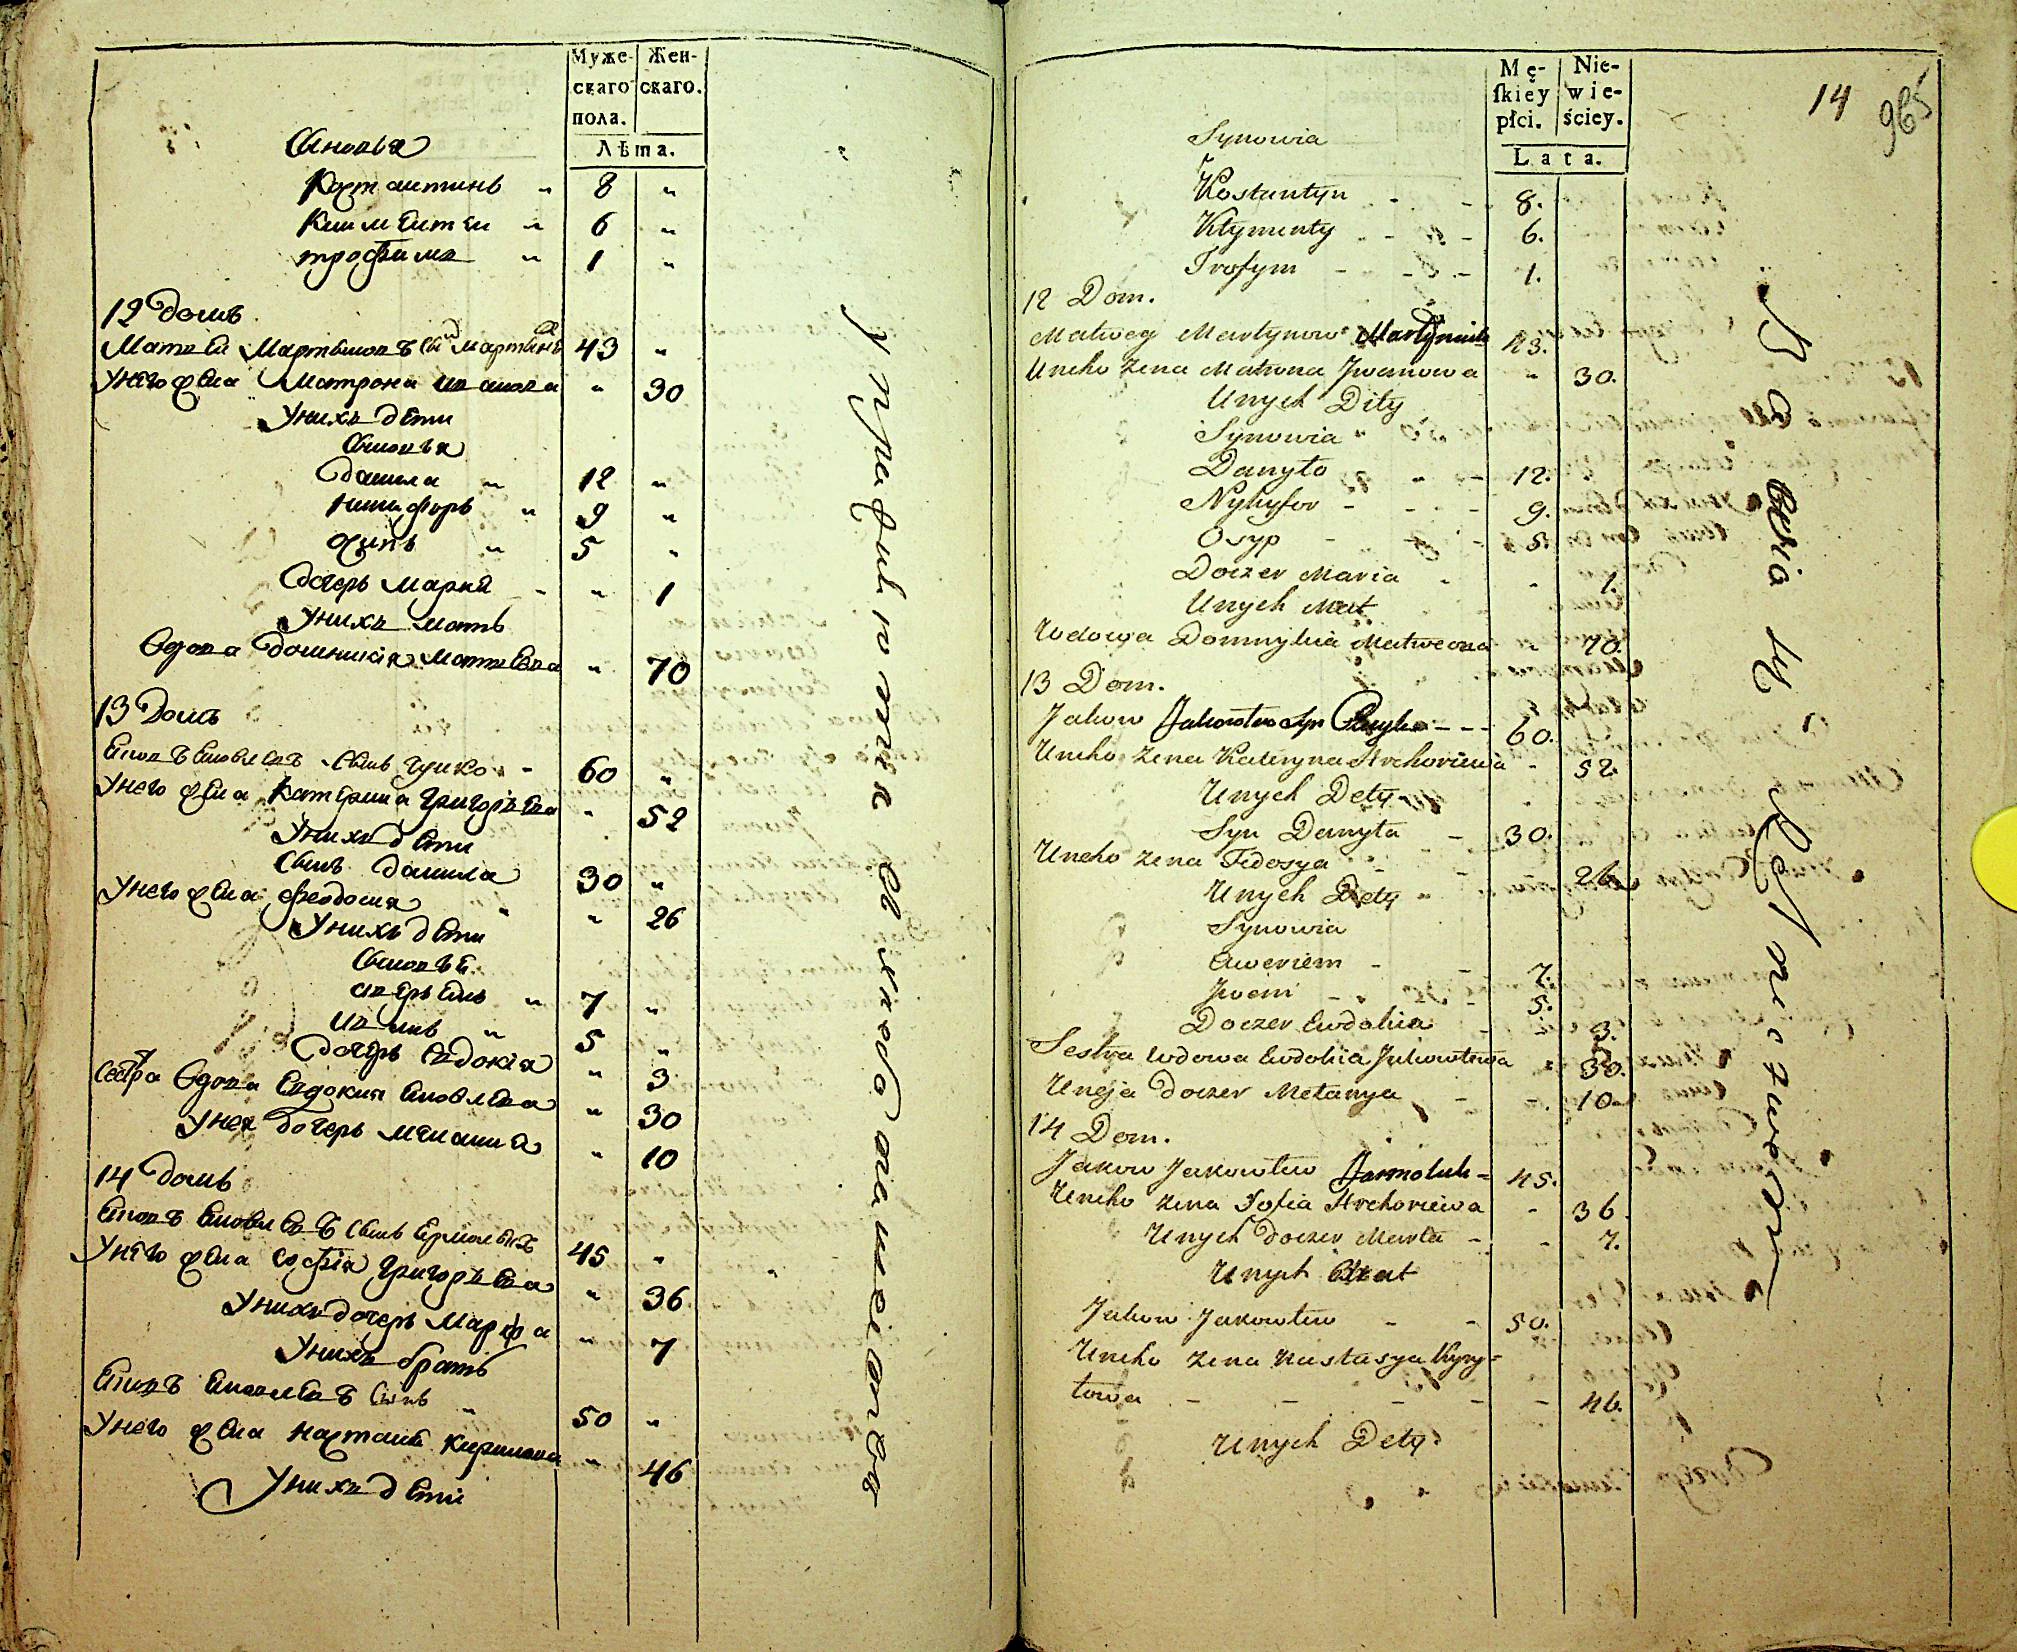 Муже-
скаго
пола.
Жен-
скаго.
Лѣта.
Сыновья
Костантинъ " 8 "
Климентеи " 6 "
трофимъ " 1 "
12 домъ
Матвѣи Мартыновъ сынъ 43 "
Унего жена Матрона Иванова " 30
Унихъ дѣти
Сыновья
Данила " 12 "
Никифоръ " 9 "
Осипъ " 5 "
Дочерь Мария " " 1
Унихъ мать
Вдова Домникия Матвѣева " 70
13 Домъ
Яковъ Яковлевъ сынъ 60 "
Унего жена Катерина Григорьева " 52
Унихъ дѣти
Сынъ Данила 30 "
Унего жена феодосия " " 26
Унихъ дѣти
Сыновьѣ
аверьянъ " 7 "
Иванъ " 5 "
Дочерь Евдокия " 3
Сестра Вдова Евдокия Яковлева " 30
Унея дочерь Мелания " 10
14 домъ
Яковъ Яковлевъ сынъ 45 "
Унего жена София Григорьева " 36
Унихъ дочерь Марфа " 7
Унихъ братъ
Яковъ Яковлевъ сынъ " 50 "
Унего жена Настасия Кирилова " 46
Унихъ дѣти
Mę-
ſkiey
płci.
Nie-
wie-
ściey.
Lata.
14
965
Synowia
Kostantyn - - 8.
Kłymenty - - 6.
Trofym - - - 1.
12 Dom.
Matwey Martynow Martyniuk 43.
Uneho żena Matrona Jwanowa " 30.
Unych Dity
Synowia "
Danyło " - 12.
Nykyfor - - - 9.
Osyp - - 5.
Doczer Maria - - 1.
Unych Mat
Wdowa Domnykia Matweowa " 70.
13 Dom.
Jakow Jakowlew syn - - - 60.
Uneho żena Kateryna Hrehoriewa - 52.
Unych Dety
Syn Danyła - 30.
Uneho żena Fedosya - - 26.
Unych Dety "
Synowia
Aweriem - - 7.
Jwem - - - 5.
Doczer Ewdokia - - 3.
Sestra wdowa Ewdokia Jakowlewa " 30.
Uneja Doczer Melanya - - 10.
14 Dom.
Jakow Jakowlew Jarmoluk = 45.
Uneho żena Sofia Hrehoriewa - 36.
Unych Doczer Marta - - 7.
Unych Brat
Jakow Jakowlew - - 50.
Uneho żena Nastasya Kyry=
łowa - - - - - 46.
Unych Dety